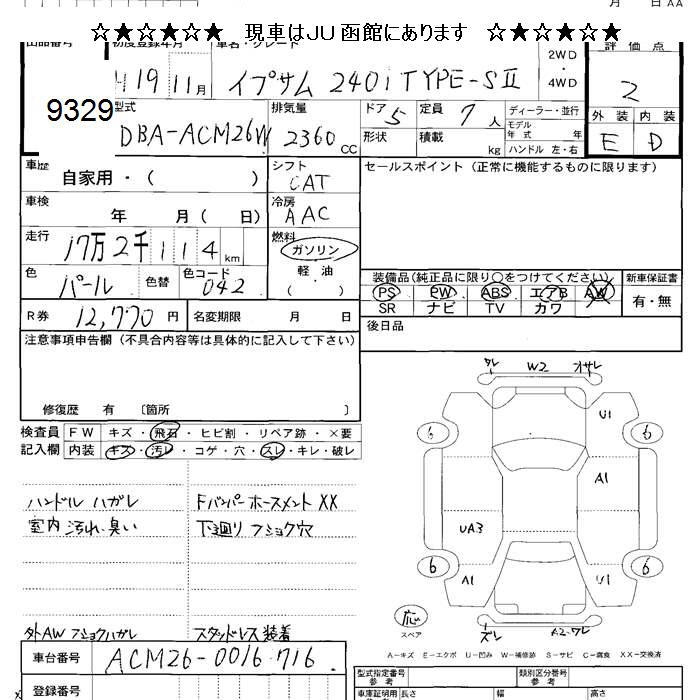 月 日 AA
☆★☆★☆★ 現車はJU函館にあります ☆★☆★☆★
初度登録年月 車名・グレード 2WD 評価点
H19 11月 イプサム 240i TYPE-SⅡ 4WD 2
9329
外装 内装
E D
型式 排気量 ドア 定員 ディーラー・並行
DBA-ACM26W 2360 CC 5 7人
形状 積載 kg モデル年式 年
ハンドル 左・右
車歴 自家用・( ) シフト CAT セールスポイント (正常に機能するものに限ります)
車検 年 月( 日) 冷房 AAC
走行 17万2千114km 燃料 ガソリン
軽油・( )
色 パール 色替 色コード 042
装備品(純正品に限り○をつけてください) 新車保証書
PS PW ABS エアB AW 有・無
SR ナビ TV カワ
R券 12,770円 名変期限 月 日
後日品
注意事項申告欄 (不具合内容等は具体的に記入して下さい)
修復歴 有 〔箇所 〕
検査員記入欄
FW キズ・飛石・ヒビ割・リペア跡・×要
内装 キズ・汚レ・コゲ・穴・スレ・キレ・破レ
ハンドル ハガレ Fバンパーホースメント XX
室内 汚れ・臭い 下廻り フショク穴
外AW フショクハガレ スタッドレス装着
W2
U1
6 6
A1
UA3
6 6
A1 U1
応
スペア
A−キズ E−エクボ U−凹み W−補修跡 S−サビ C−腐食 XX−交換済
車台番号 ACM26-0016716
登録番号
型式指定番号 参考 類別区分番号 参考
車庫証明用 長さ 幅 高さ